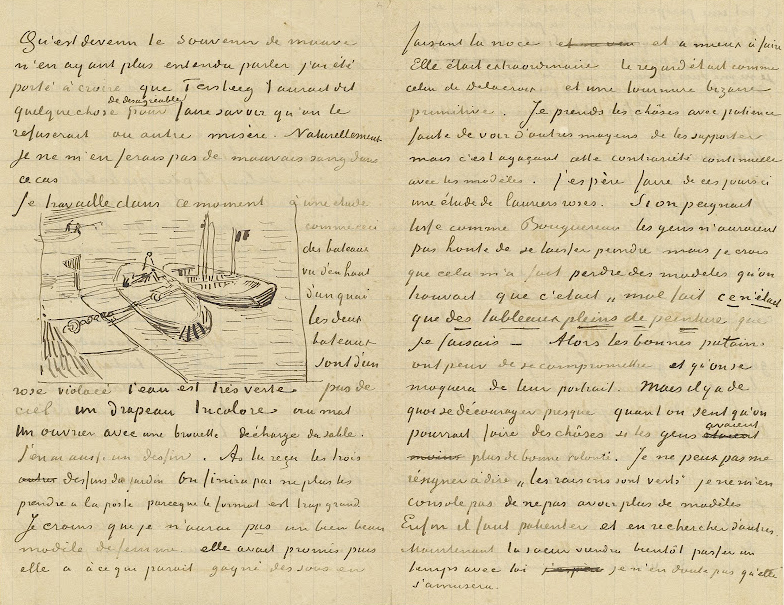 Qu'est devenu le souvenir de mauve
n'en ayant plus entendu parler j'ai été
porté à croire que Tersteeg t'aurait dit
quelquechose de désagréable pour faire savoir qu'on le
refuserait ou autre misère. Naturellement
je ne m'en ferais pas de mauvais sang dans
ce cas
Je travaille dans ce moment à une étude
comme ceci
des bateaux
vu d'en haut
d'un quai
les deux
bateaux
sont d'un
rose violacé l'eau est très verte pas de
ciel un drapeau tricolore au mat
Un ouvrier avec une brouette décharge du sable.
J'en ai aussi un dessin. As tu reçu les trois
autres dessins du jardin On finira par ne plus les
prendre a la poste parceque le format est trop grand
Je crains que je n'aurai pas un bien beau
modèle de femme. elle avait promis puis
elle a à ce que parait gagné des sous en
faisant la noce et et a mieux à faire
Elle était extraordinaire le regard était comme
celui de Delacroix et une tournure bizarre
primitive. Je prends les chôses avec patience
faute de voir d'autres moyens de les supporter
mais c'est agaçant cette contrariété continuelle
avec les modèles. J'espère faire de ces jours ci
une étude de lauriers roses. Si on peignait
lisse comme Bouguereau les gens n'auraient
pas honte de se laisser peindre mais je crois
que cela m'a fait perdre des modeles qu'on
trouvait que c'était „mal fait ce n'était
que des tableaux pleins de peinture que
je faisais — Alors les bonnes putains
ont peur de se compromettre et qu'on se
moquera de leur portrait. Mais il y a de
quoi se décourager presque quant on sent qu'on
pourrait faire des chôses si les gens avaient
moins plus de bonne volonté. Je ne peux pas me
résigner à dire „les raisins sont verts" je ne m'en
console pas de ne pas avoir plus de modèles
Enfin il faut patienter et en rechercher d'autres.
Maintenant la soeur viendra bientôt passer un
temps avec toi j'espère je n'en doute pas qu'elle
s'amusera.